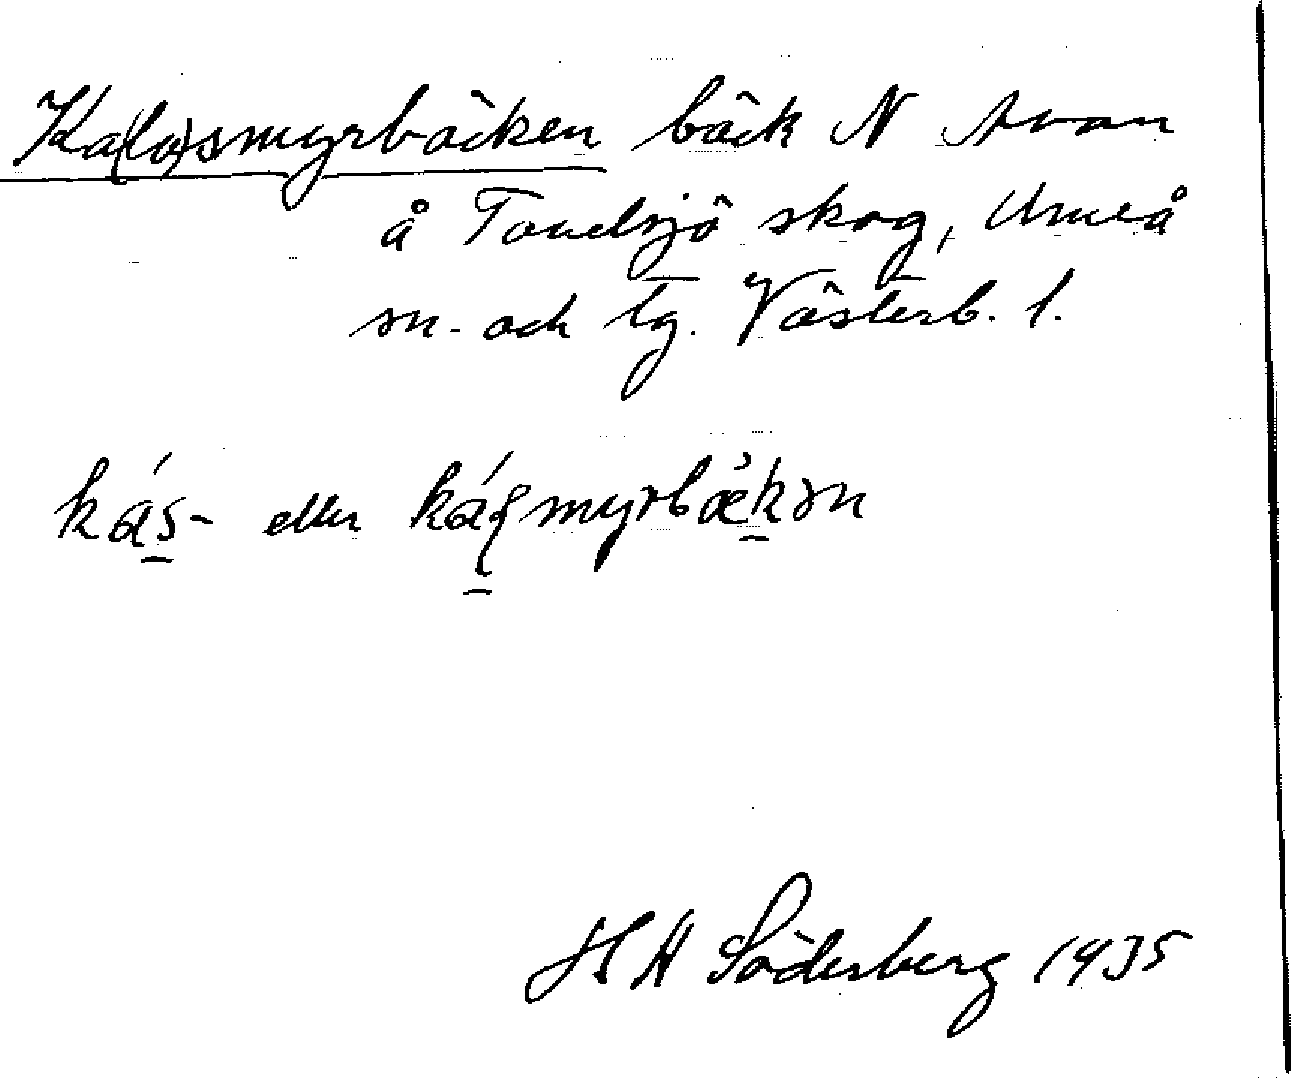 Ka(la)smyrbäcken bäck N Avan
å Tavelsjö skog, Umeå
sn. och tg. Västerb. l.
kás- eller
H H Söderberg 1935